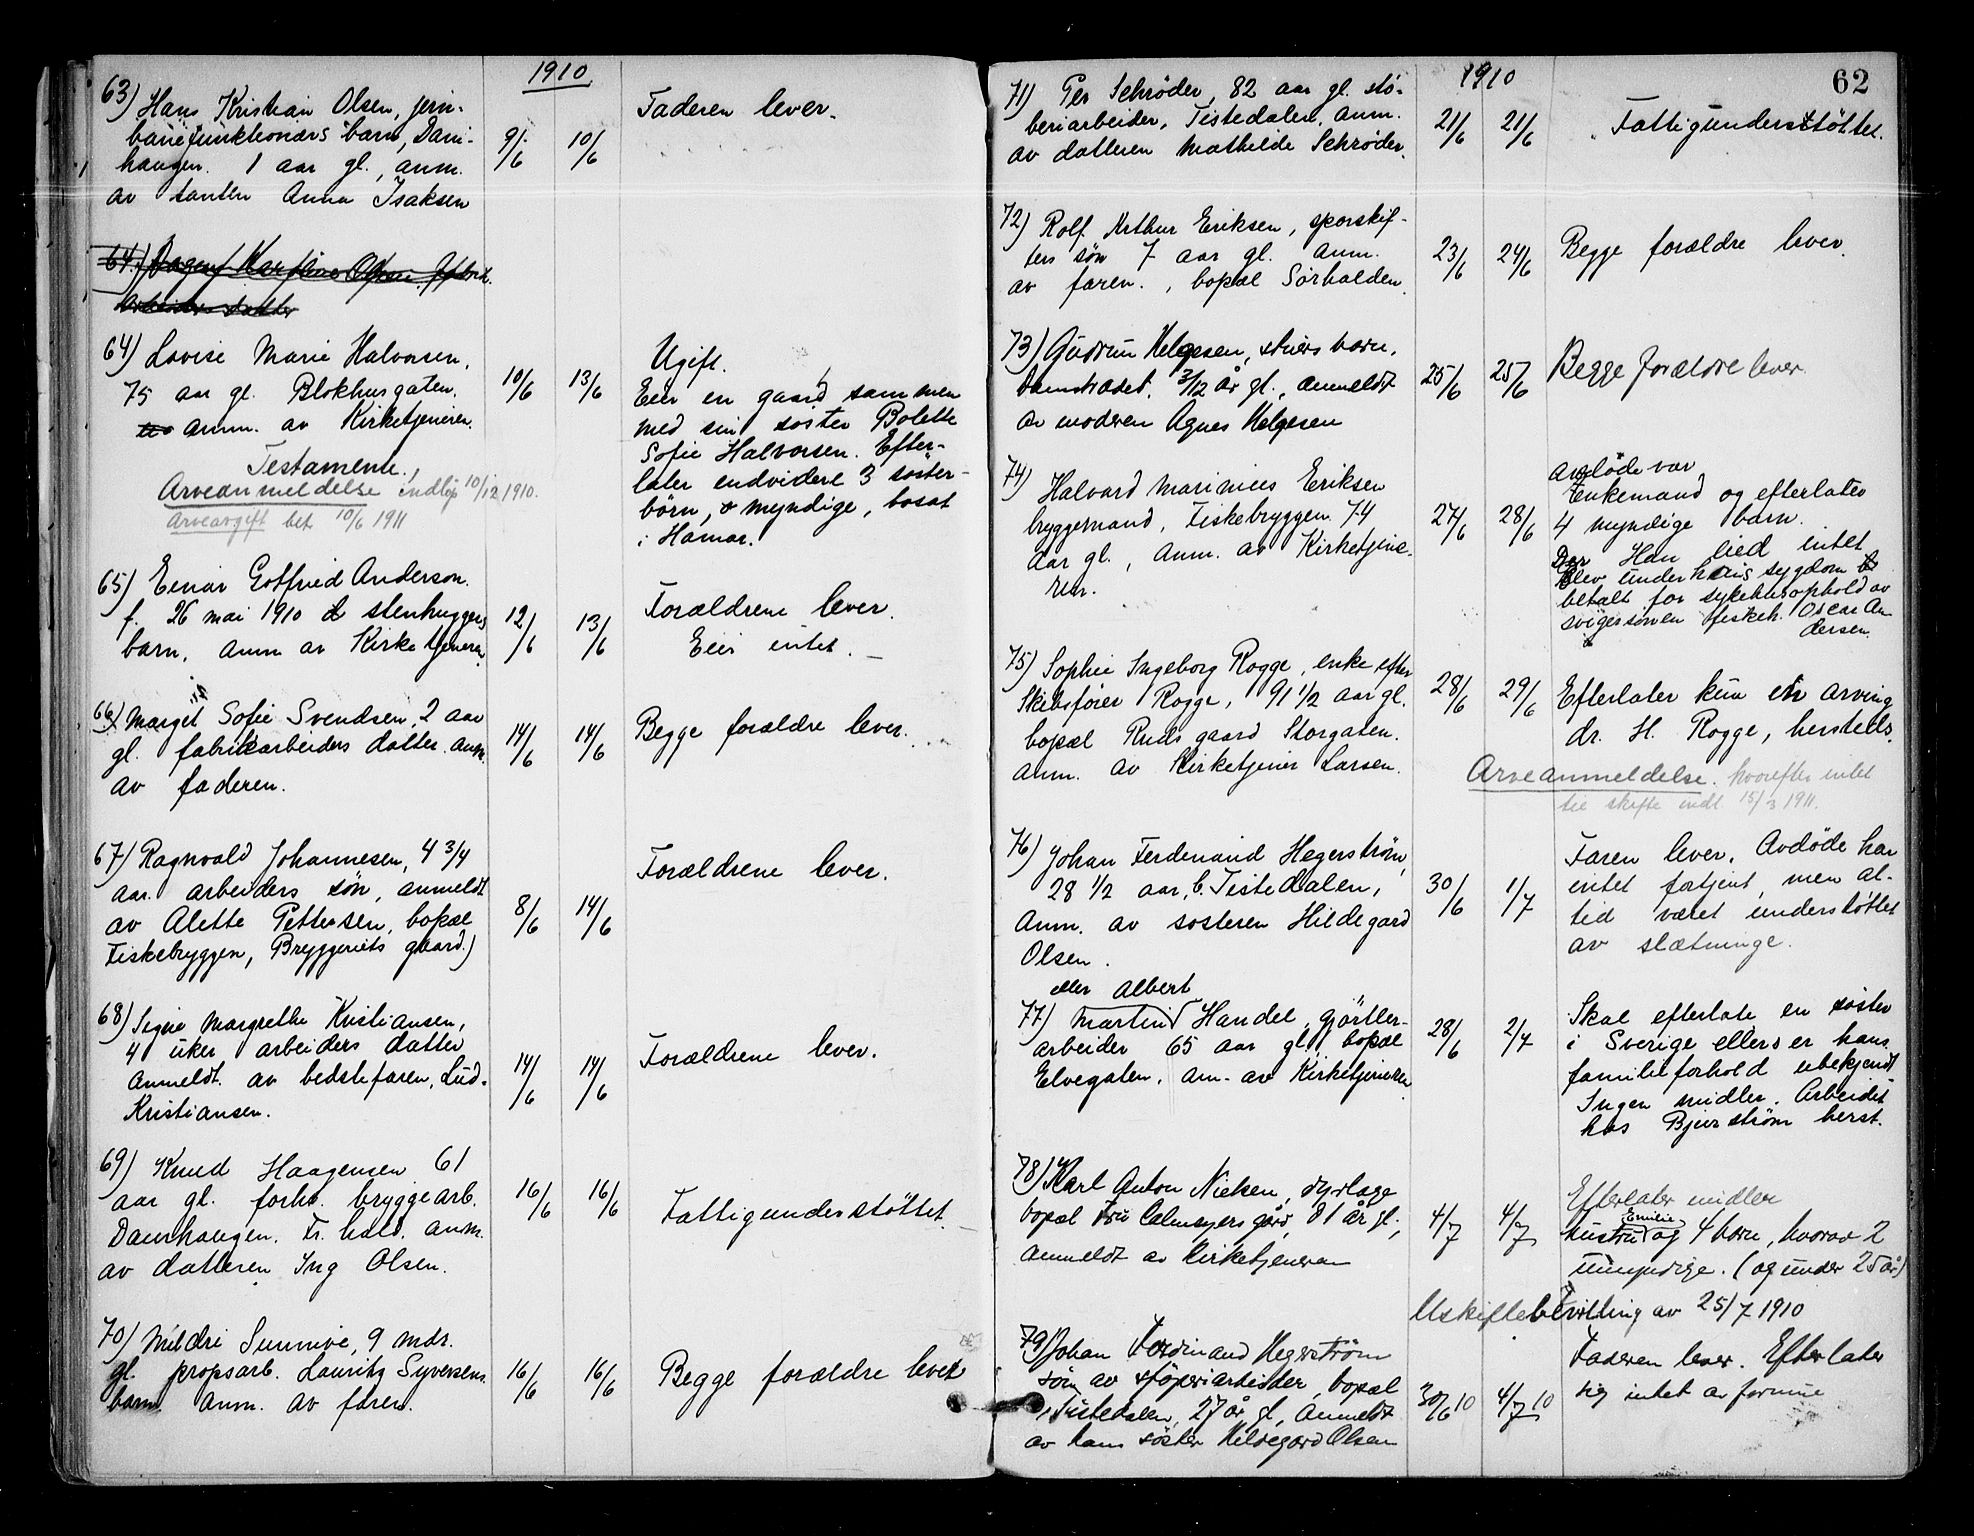 1910
63) Hans Kristian Olsen, jern-
banefunktionærs barn, Dam-
haugen. 1 aar gl., anm.
av tanten Anna Isaksen
9/6 10/6
Faderen lever.
64.)
Arbeiders datter
64) Lovise Marie Halvorsen,
75 aar gl. Blokhusgaten.
anm. av Kirketjeneren.
Testamente.,
Arveanmeldelse indløp 10/12 1910.
Arveavgift bet 10/6 1911
10/6 13/6
Ugift.
Eier en gaard sammen
med sin søster Bolette
Sofie Halvorsen. Efter-
later endvidere 3 søster-
børn, myndige, bosat
i Hamar.
65) Einar Gotfried Anderson.
f. 26 mai 1910 stenhuggers
barn. Anm av Kirketjeneren
12/6 13/6
Forældrene lever.
Eier intet.
66) Margit Sofie Svendsen, 2 aar
gl. fabrikarbeiders datter. anm.
av faderen.
14/6 14/6
Begge forældre lever.
67) Ragnvald Johannesen, 4 3/4
aar. arbeiders søn, anmeldt
av Alette Pettersen, bopæl
Fiskebryggen, Bryggeriets gaard.)
8/6 14/6
Forældrene lever.
68) Signe Margrethe Kristiansen,
4 uker arbeiders datter
Anmeldt av bedstefaren, Lud.
Kristiansen.
14/6 14/6
Forældrene lever.
69) Knud Haagensen 61
aar gl. forhv. bryggearb.
Damhaugen. Fr. hald. anm.
av datteren Ing Olsen.
16/6 16/6
Fattigunderstøttet.
70) Mildri Sunnive, 9 mdr.
gl. propsarb. Lauritz Syversens
barn. Anm. av faren.
16/6 16/6
Begge forældre lever
62
1910
71) Per Schrøder, 82 aar gl. stø-
beriarbeider, Tistedalen, anm.
av datteren Mathilde Schrøder.
21/6 21/6
Fattigunderstøttet.
72) Rolf Arthur Eriksen, sporskif-
ters søn 7 aar gl. anm.
av faren., bopæl Sørhalden.
23/6 24/6
Begge forældre lever.
73) Gudrun Helgesen, skiers barn,
Damstrædet, 3/12 år gl., anmeldt
av moderen Agnes Helgesen
25/6 25/6
Begge forældre lever.
74) Halvard Marinius Eriksen
bryggemand, Fiskebryggen 74
aar gl., anm. av Kirketjene-
ren.
27/6 28/6
avdøde var
Enkemand og efterlater
4 myndige barn.
Han eied intet
Der blev under hans sygdom
betalt for sykehusophold av
svigersønen fiskeh. Oscar An-
dersen.
75) Sophie Ingeborg Rogge, enke efter
Skibsfører Rogge, 91 1/2 aar gl.
bopæl Ruds gaard Storgaten.
anm. av Kirketjener Larsen.
28/6 29/6
Efterlater kun en arving
dr. H. Rogge, hersteds.
Arveanmeldelse. hvorefter intet
til skifte indl. 15/3 1911.
76) Johan Ferdinand Hegerstrøm,
28 1/2 aar, b. Tistedalen,
Anm. av søsteren Hildegard
Olsen.
30/6 1/7
Faren lever. Avdøde har
intet fortjent, men al-
tid været understøttet
av slægtninge.
eller Albert
77) Martin Handel, gjørtler-
arbeider 65 aar gl., bopæl
Elvegaten. Am. av Kirketjeneren
28/6 2/7
Skal efterlate en søster
i Sverige ellers er hans
familieforhold ubekjendt
Ingen midler. Arbeidet
hos Bjurstrøm herst.
78) Karl Anton Nielsen, dyrlæge
bopæl Fru Calmeyers gård, 81 år gl.,
anmeldt av Kirketjeneren
4/7 4/7
Efterlater midler
hustru Emilie og 4 børn, hvorav 2
umyndige. (og under 25 år)
Uskiftebevilling av 25/7 1910
79) Johan Ferdinand Hegerstrøm
søn av støperiarbeider, bopæl
i Tistedalen, 27 år gl, anmeldt
av hans søster Hildegard Olsen
30/6 10 4/7 10
Faderen lever. Efterlater
sig intet av formue